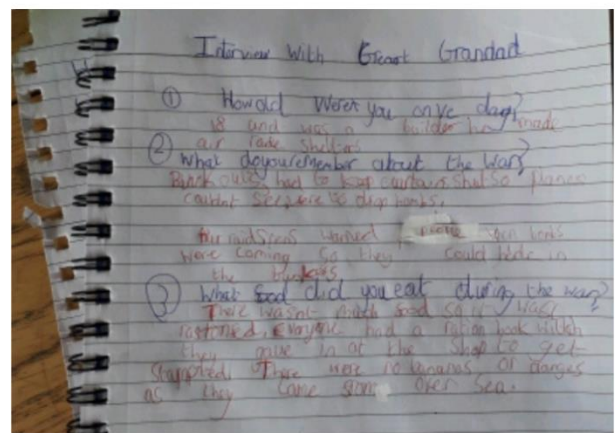 Interview With Great Grandad
① How old Were you on ve day?
18 and was a builder he made
air rade shelters
② What do you remember about the War?
Black outs, had to keep curtains shut So planes
couldnt See were to drop bombs.
Air raid Sirens warned people wen bombs
were coming So they could hide in
the bunkers
③ What food did you eat during the war?
There wasnt much food so it was
rationed, Everyone had a ration book witch
they gave in at the Shop to get
stampted. There were no bananas or oranges
as they came from over Sea.